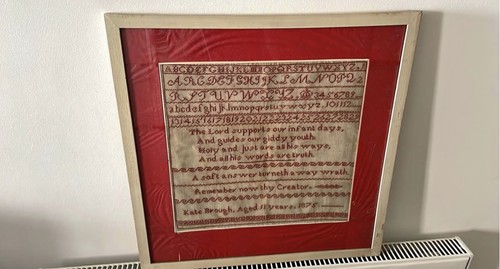 ABCDEFGHIJKLMNOPQRSTUVWXYZ
ABCDEFGHIJKLMNOPQ
RSTUVWXYZ 23456789
abcdefghijklmnopqrstuvwxyz, 10 11 12
13 14 15 16 17 18 19 20 21 22 23 24 25 26 27 28
The Lord supports our infant days,
And guides our giddy youth.
Holy and just are all his ways,
And all his words are truth
A soft answer turneth away wrath
Remember now thy Creator
Kate Brough, Aged 11 years, 1878